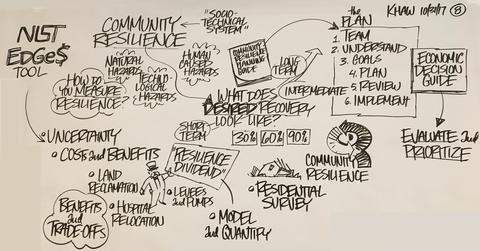 NIST
EDGe$
TOOL
COMMUNITY
RESILIENCE
"SOCIO-
TECHNICAL
SYSTEM"
NATURAL
HAZARDS
TECHNO-
LOGICAL
HAZARDS
HUMAN
CAUSED
HAZARDS
HOW DO
YOU MEASURE
RESILIENCE?
COMMUNITY
RESILIENCE
PLANNING
GUIDE
the
PLAN
1. TEAM
2. UNDERSTAND
3. GOALS
4. PLAN
5. REVIEW
6. IMPLEMENT
KHAW 10/31/17 8
ECONOMIC
DECISION
GUIDE
EVALUATE and
PRIORITIZE
WHAT DOES
DESIRED RECOVERY
LOOK LIKE?
SHORT
TERM
INTERMEDIATE
LONG
TERM
30% 60% 90%
UNCERTAINTY
COSTS and BENEFITS
LAND
RECLAMATION
HOSPITAL
RELOCATION
BENEFITS
and
TRADEOFFS
"RESILIENCE
DIVIDEND"
LEVEES
and PUMPS
MODEL
and QUANTIFY
COMMUNITY
RESILIENCE
RESIDENTIAL
SURVEY